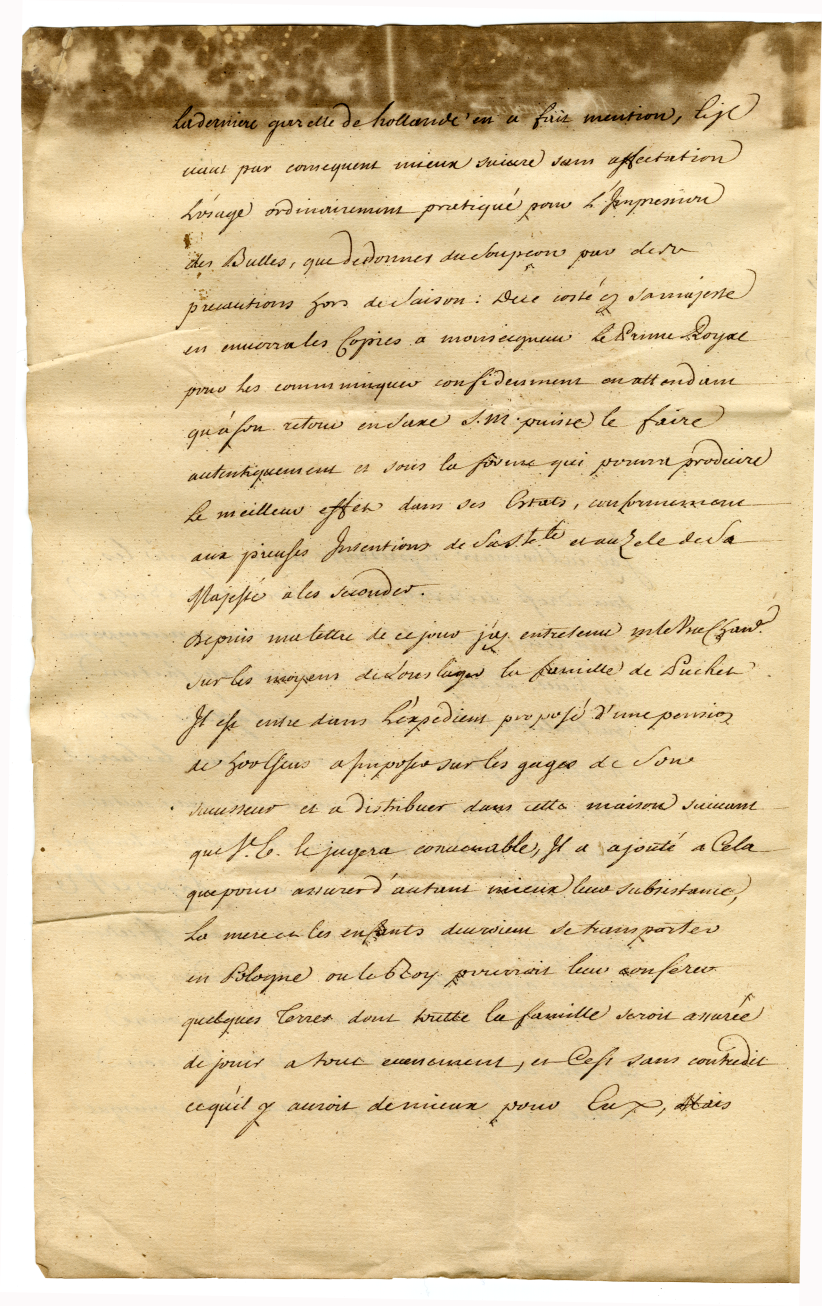 la derniere gazette de hollande en a fait mention, Il
vaut par consequent mieux suivre sans affectation
L'usage ordinairement pratiqué pour L'Impression
des Bulles, que de donner du Soupçon par de
precautions hors de Saison: De ce costé cy sa majesté
en envoira les Copies a monseigneur le Prince Royal
pour les communiquer confidemment en attendant
qu'a son retour en Saxe S. M. puisse le faire
autentiquement et sous la forme qui pourra produire
le meilleur effet dans ses Estats, conformement
aux pieuses Intentions de Sa S.te té et au Zele de Sa
Majesté a les seconder.
Depuis ma lettre de ce jour j'ay entretenu
sur les moyens de soulager la famille de Puchet
Il est entré dans L'expedient proposé d'une pension
de a imposer sur les gages de Son
successeur et a distribuer dans cette maison suivant
que V. E. le jugera convenable, Il a ajouté a Cela
que pour assurer d'autant mieux leur subsistance,
La mere et les enfants devroient se transporter
en Pologne ou le Roy pourroit leur conferer
quelques Terres dont toutte la famille seroit assurée
de jouir a tout evenement, et C'est sans contredit
ce qu'il y auroit de mieux pour Eux, Mais